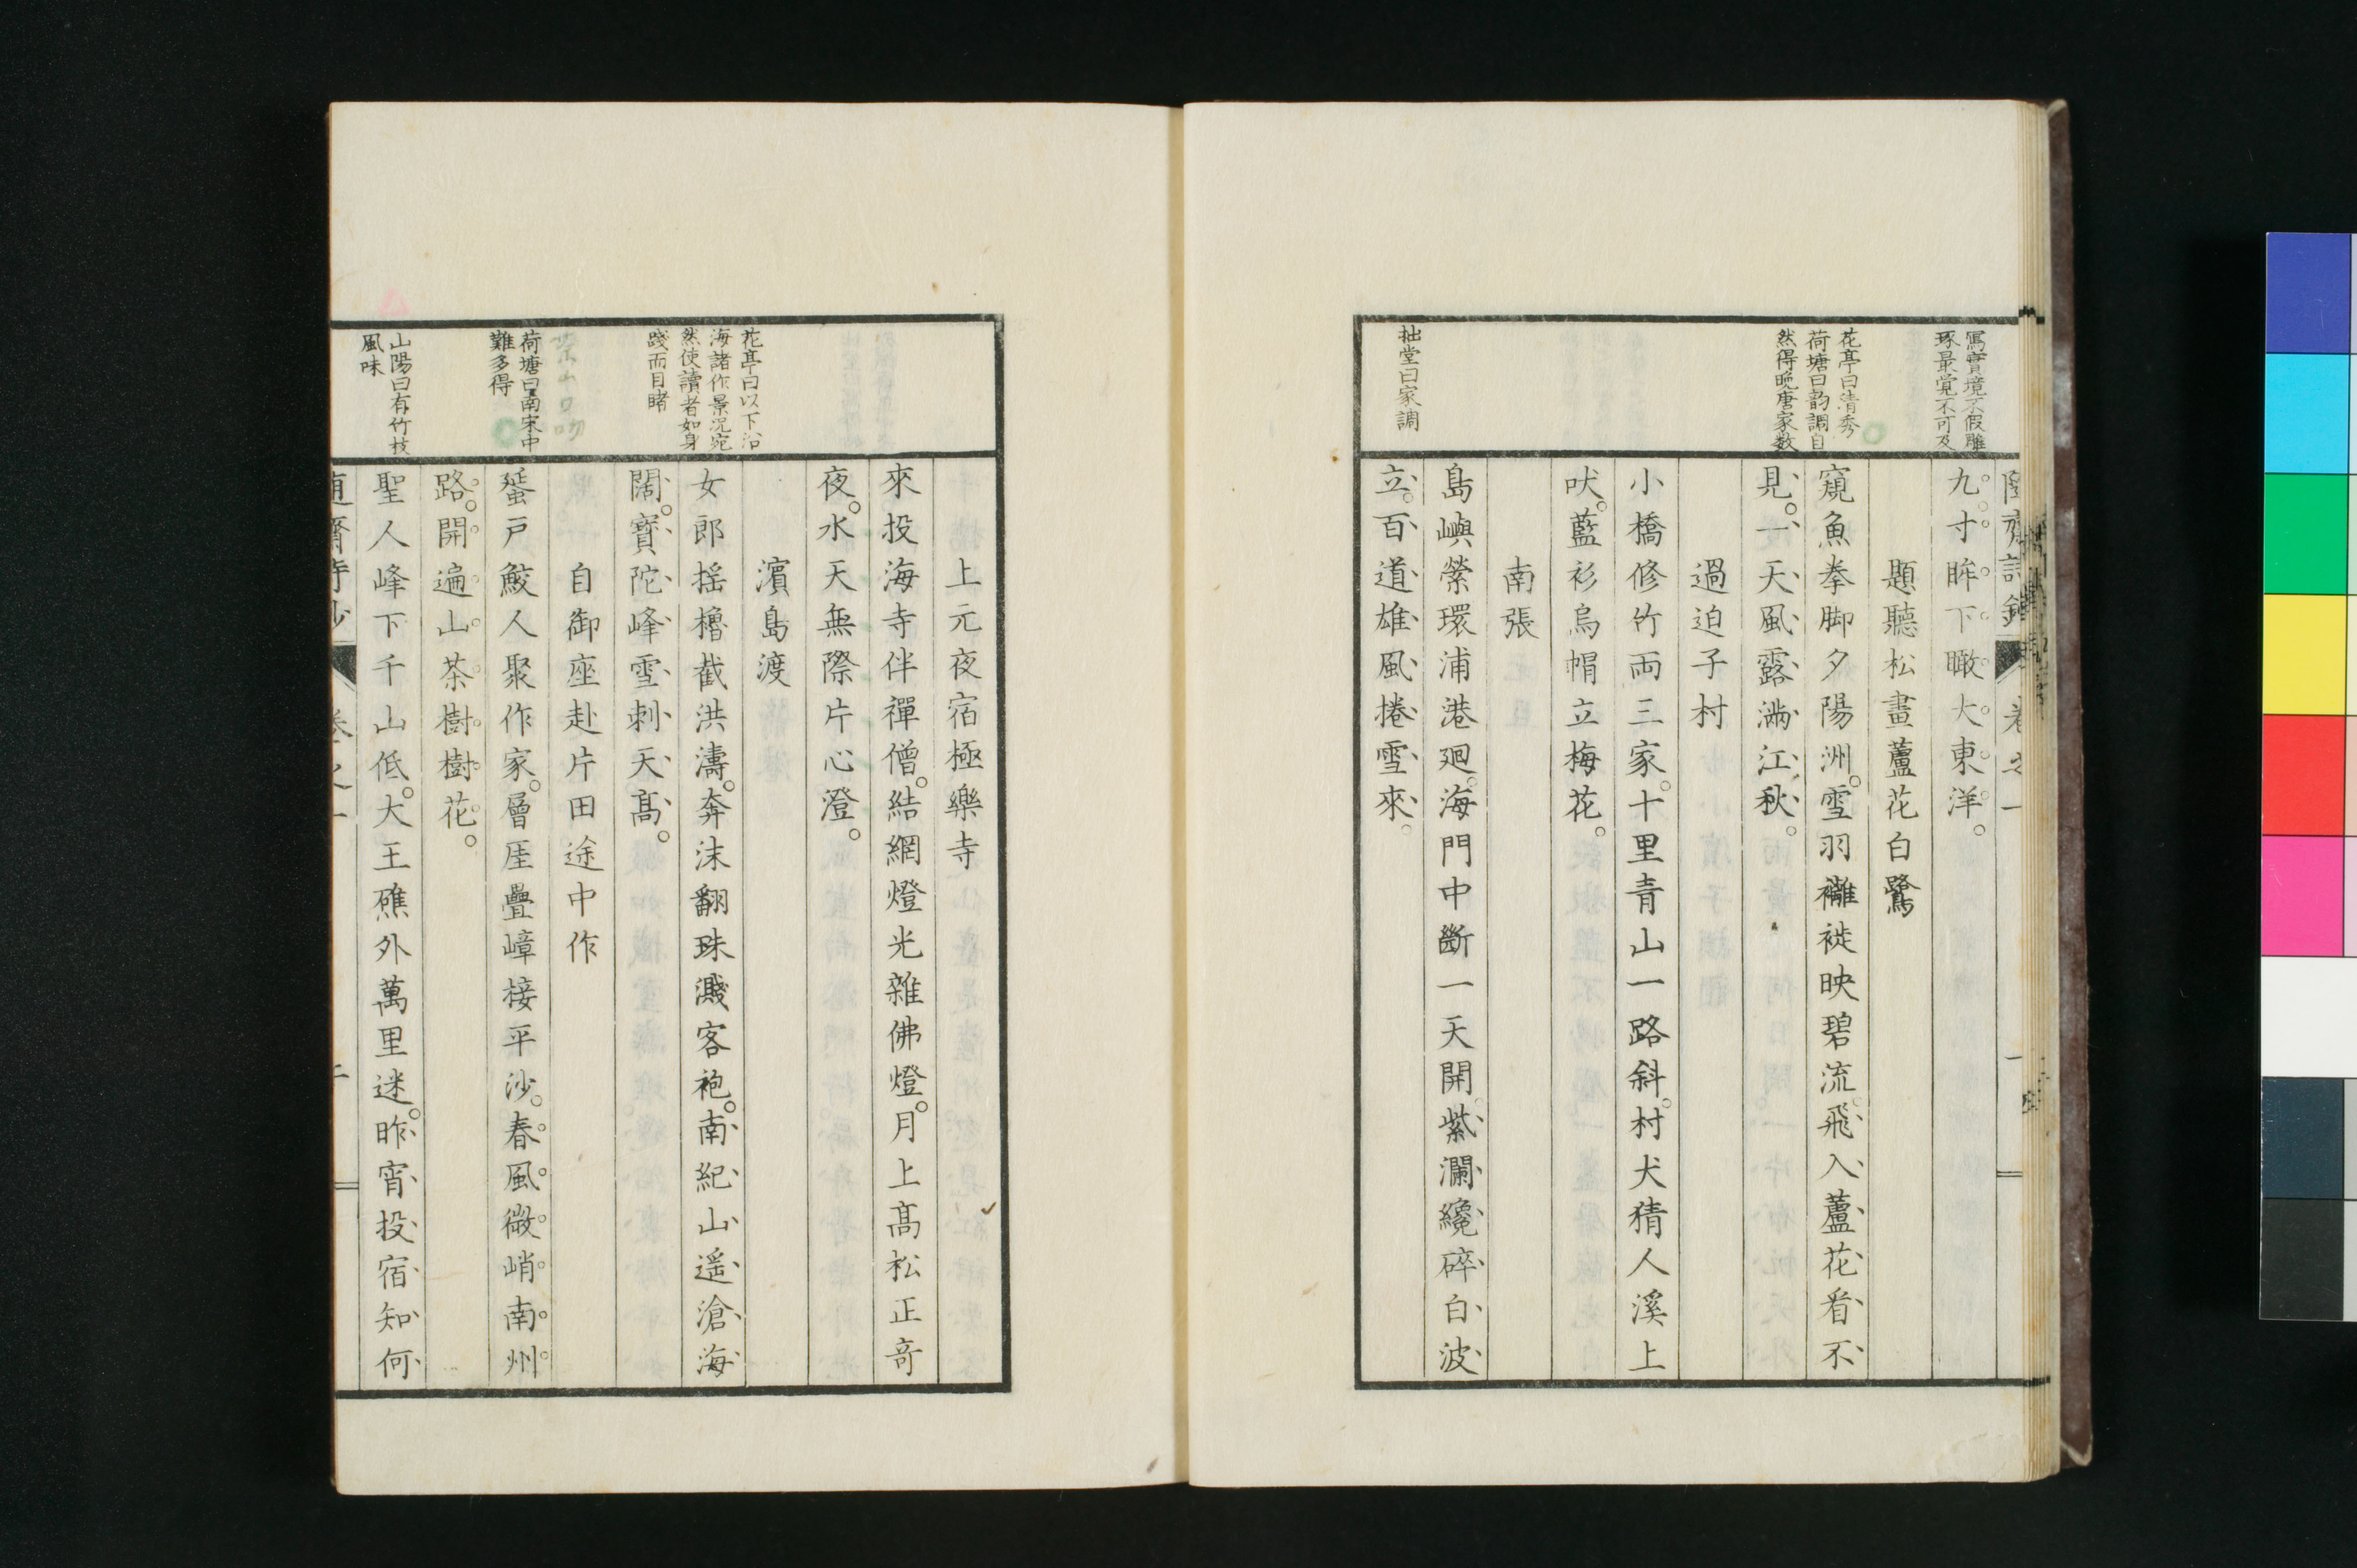 寫實境不假雕
琢最覚不可及
九寸眸下瞰大東洋。
題聽松畫蘆花白鷺
花亭曰清秀
荷塘曰韵調自
然得晩唐家数
窺魚拳脚夕陽洲。雪羽襹褷映碧流。飛入蘆花看不
見。一天風露滿江秋。
過迫子村
小橋修竹両三家。十里青山一路斜。村犬猜人溪上
吠。藍衫烏帽立梅花。
南張
島嶼縈環浦港廻。海門中斷一天開。紫瀾纔碎白波
拙堂曰家調
立。百道雄風捲雪來。
上元夜宿極樂寺
來投海寺伴禪僧。結網燈光雜佛燈。月上髙松正竒
夜。水天無際片心澄。
濱島渡
花亭曰以下沿
海諸作景况宛
然使讀者如身
踐而目睹
女郎揺櫓截洪濤。奔沫翻珠濺客袍。南紀山遥滄海
闊。寳陀峰雪刺天髙。
自御座赴片田途中作
荷塘曰南宋中
難多得
蜑戸鮫人聚作家。層厓疊嶂接平沙。春風微峭南州
路。開遍山茶樹樹花。
山陽曰有竹枝
風味
聖人峰下千山低。大王礁外萬里迷。昨宵投宿知何